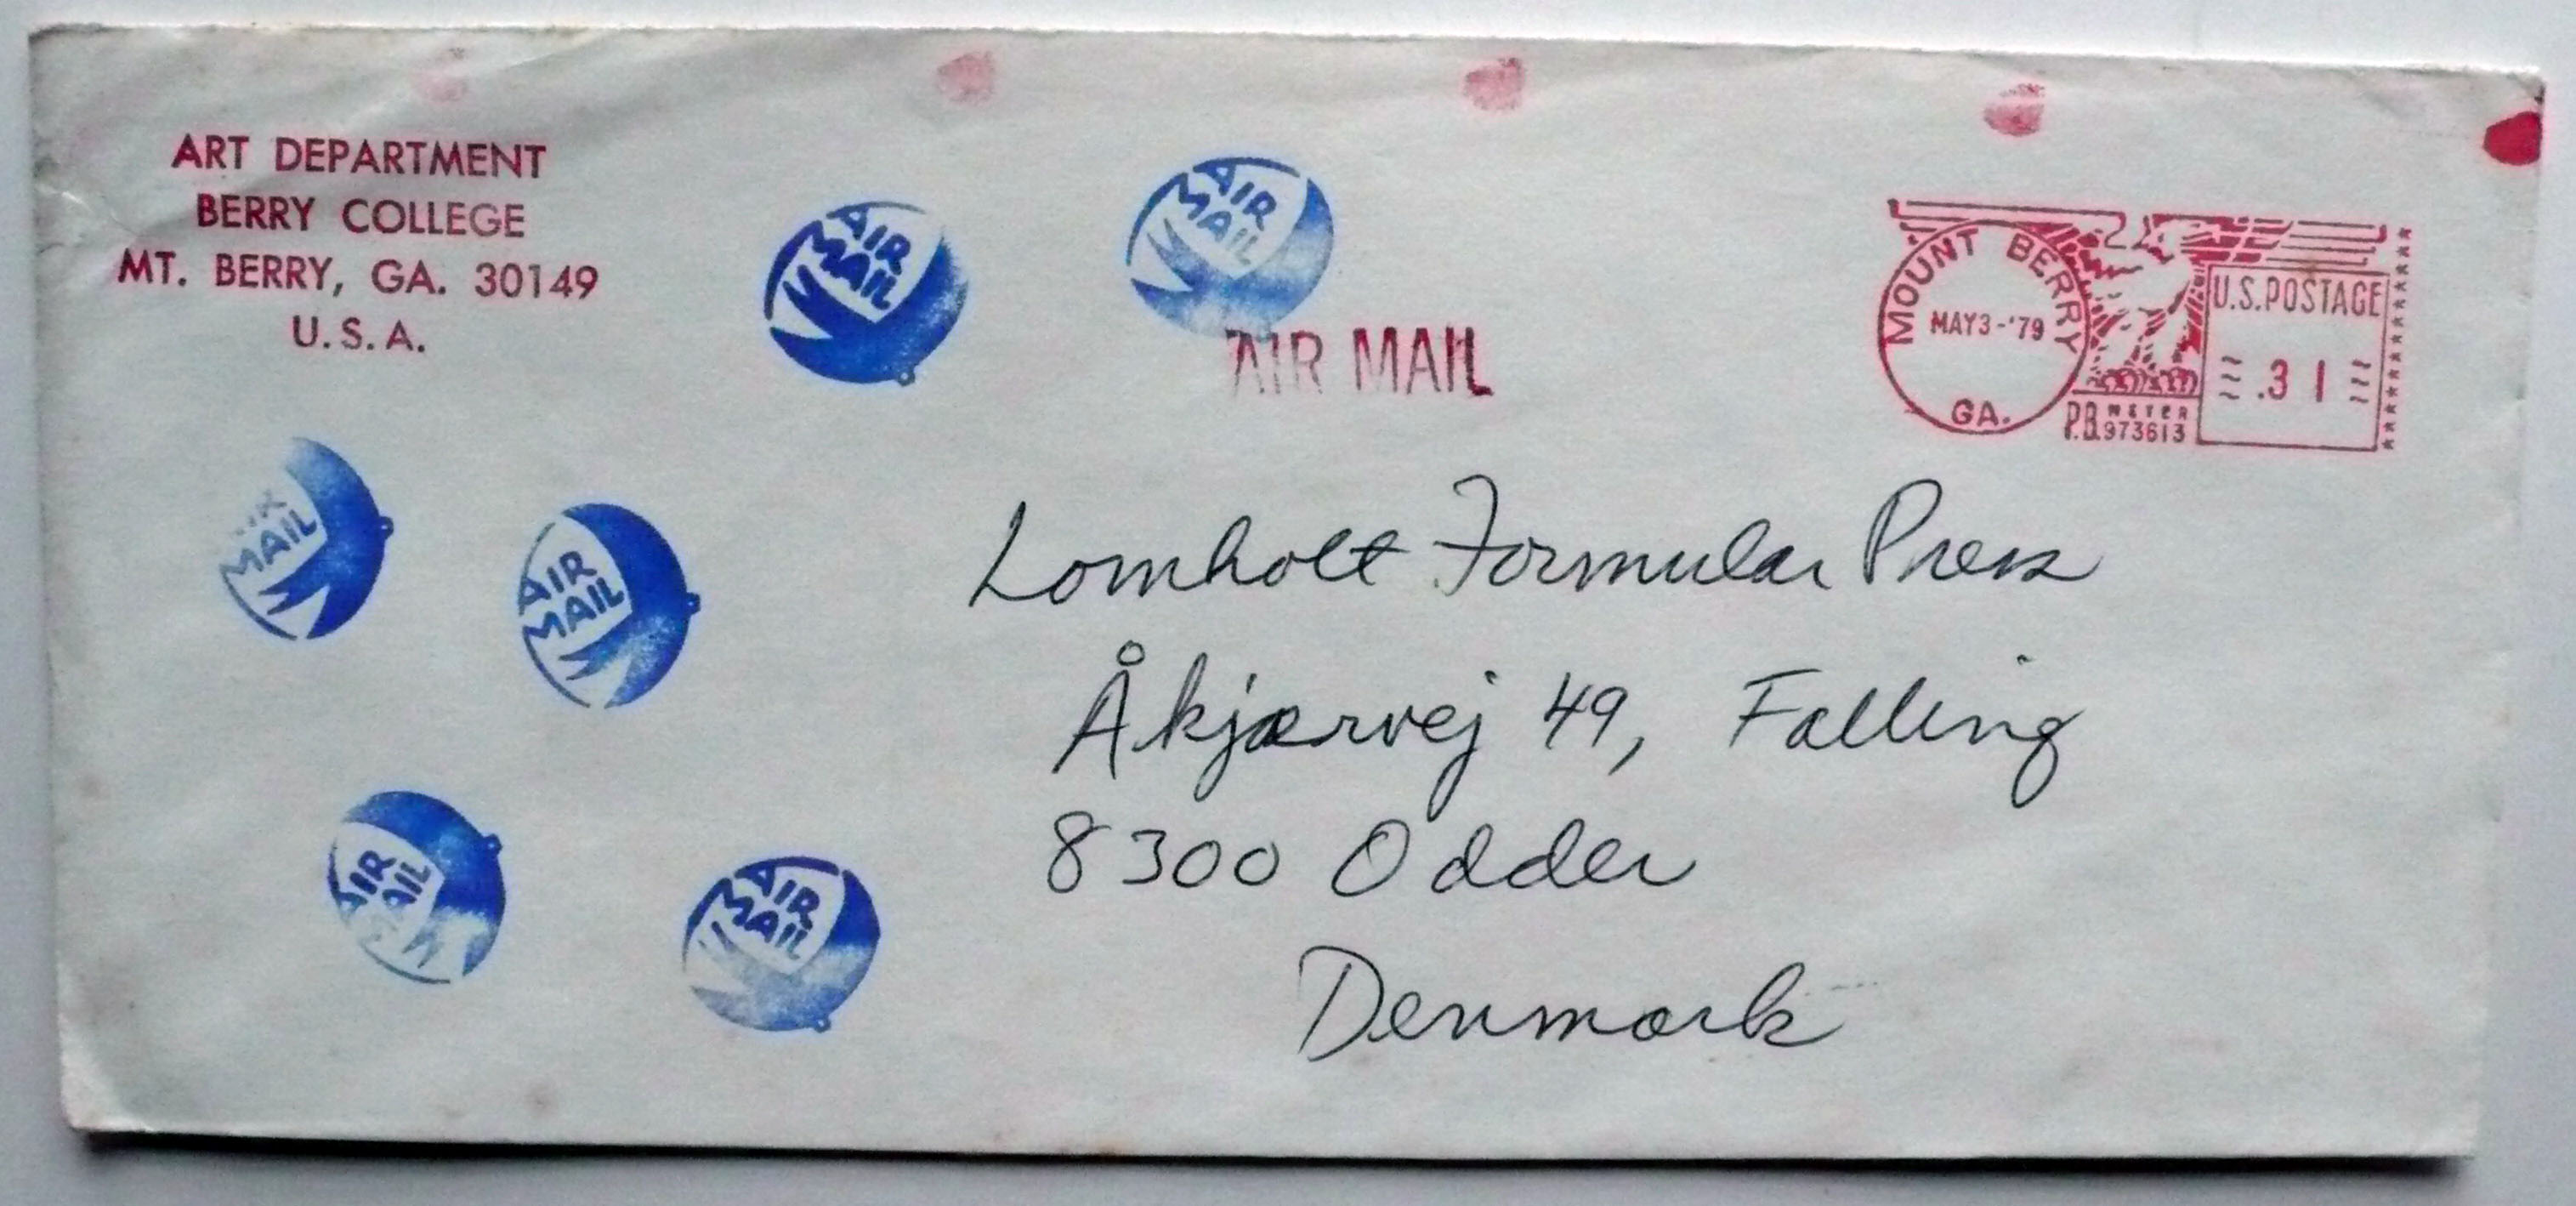 ART DEPARTMENT
BERRY COLLEGE
MT. BERRY, GA. 30149
U.S.A.
AIR
MAIL
AIR
MAIL
AIR MAIL
MOUNT BERRY
MAY 3-'79
GA.
P.B. METER
973613
U.S. POSTAGE
.31
MAIL
AIR
MAIL
AIR
MAIL
AIR
MAIL
Lomholt Formular Press
Åkjærvej 49, Falling
8300 Odder
Denmark